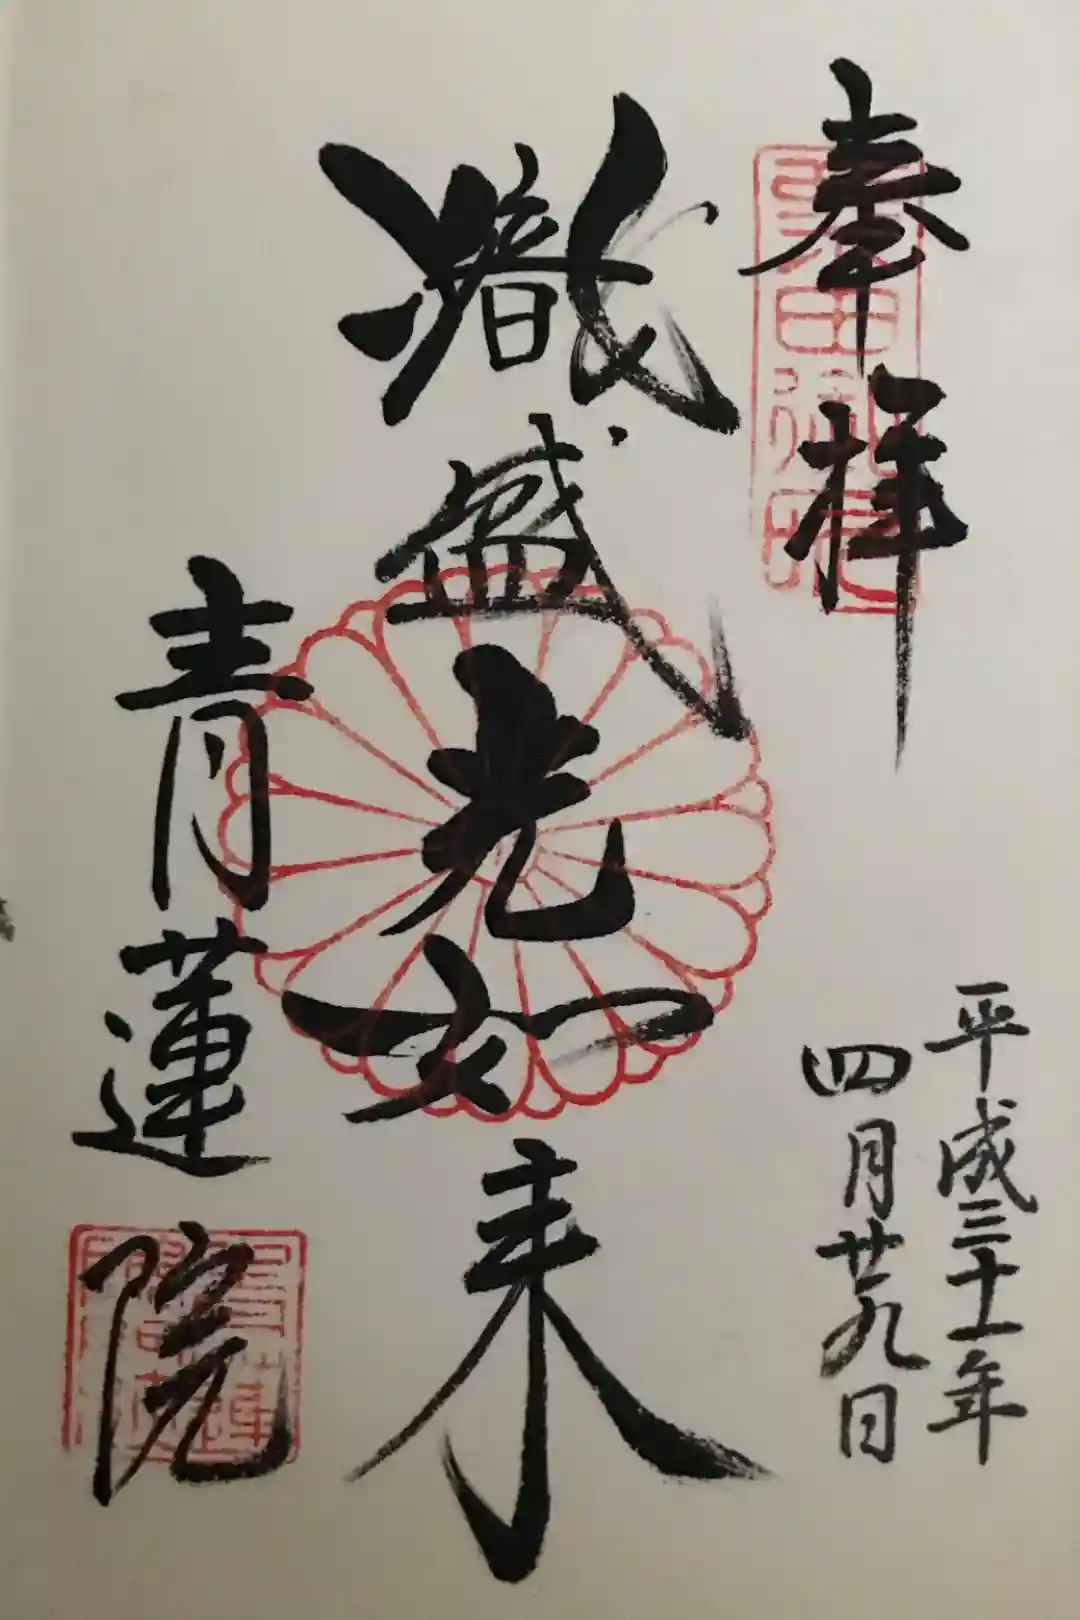 奉拝
平成三十一年
四月廿九日
熾盛光如来
青蓮院